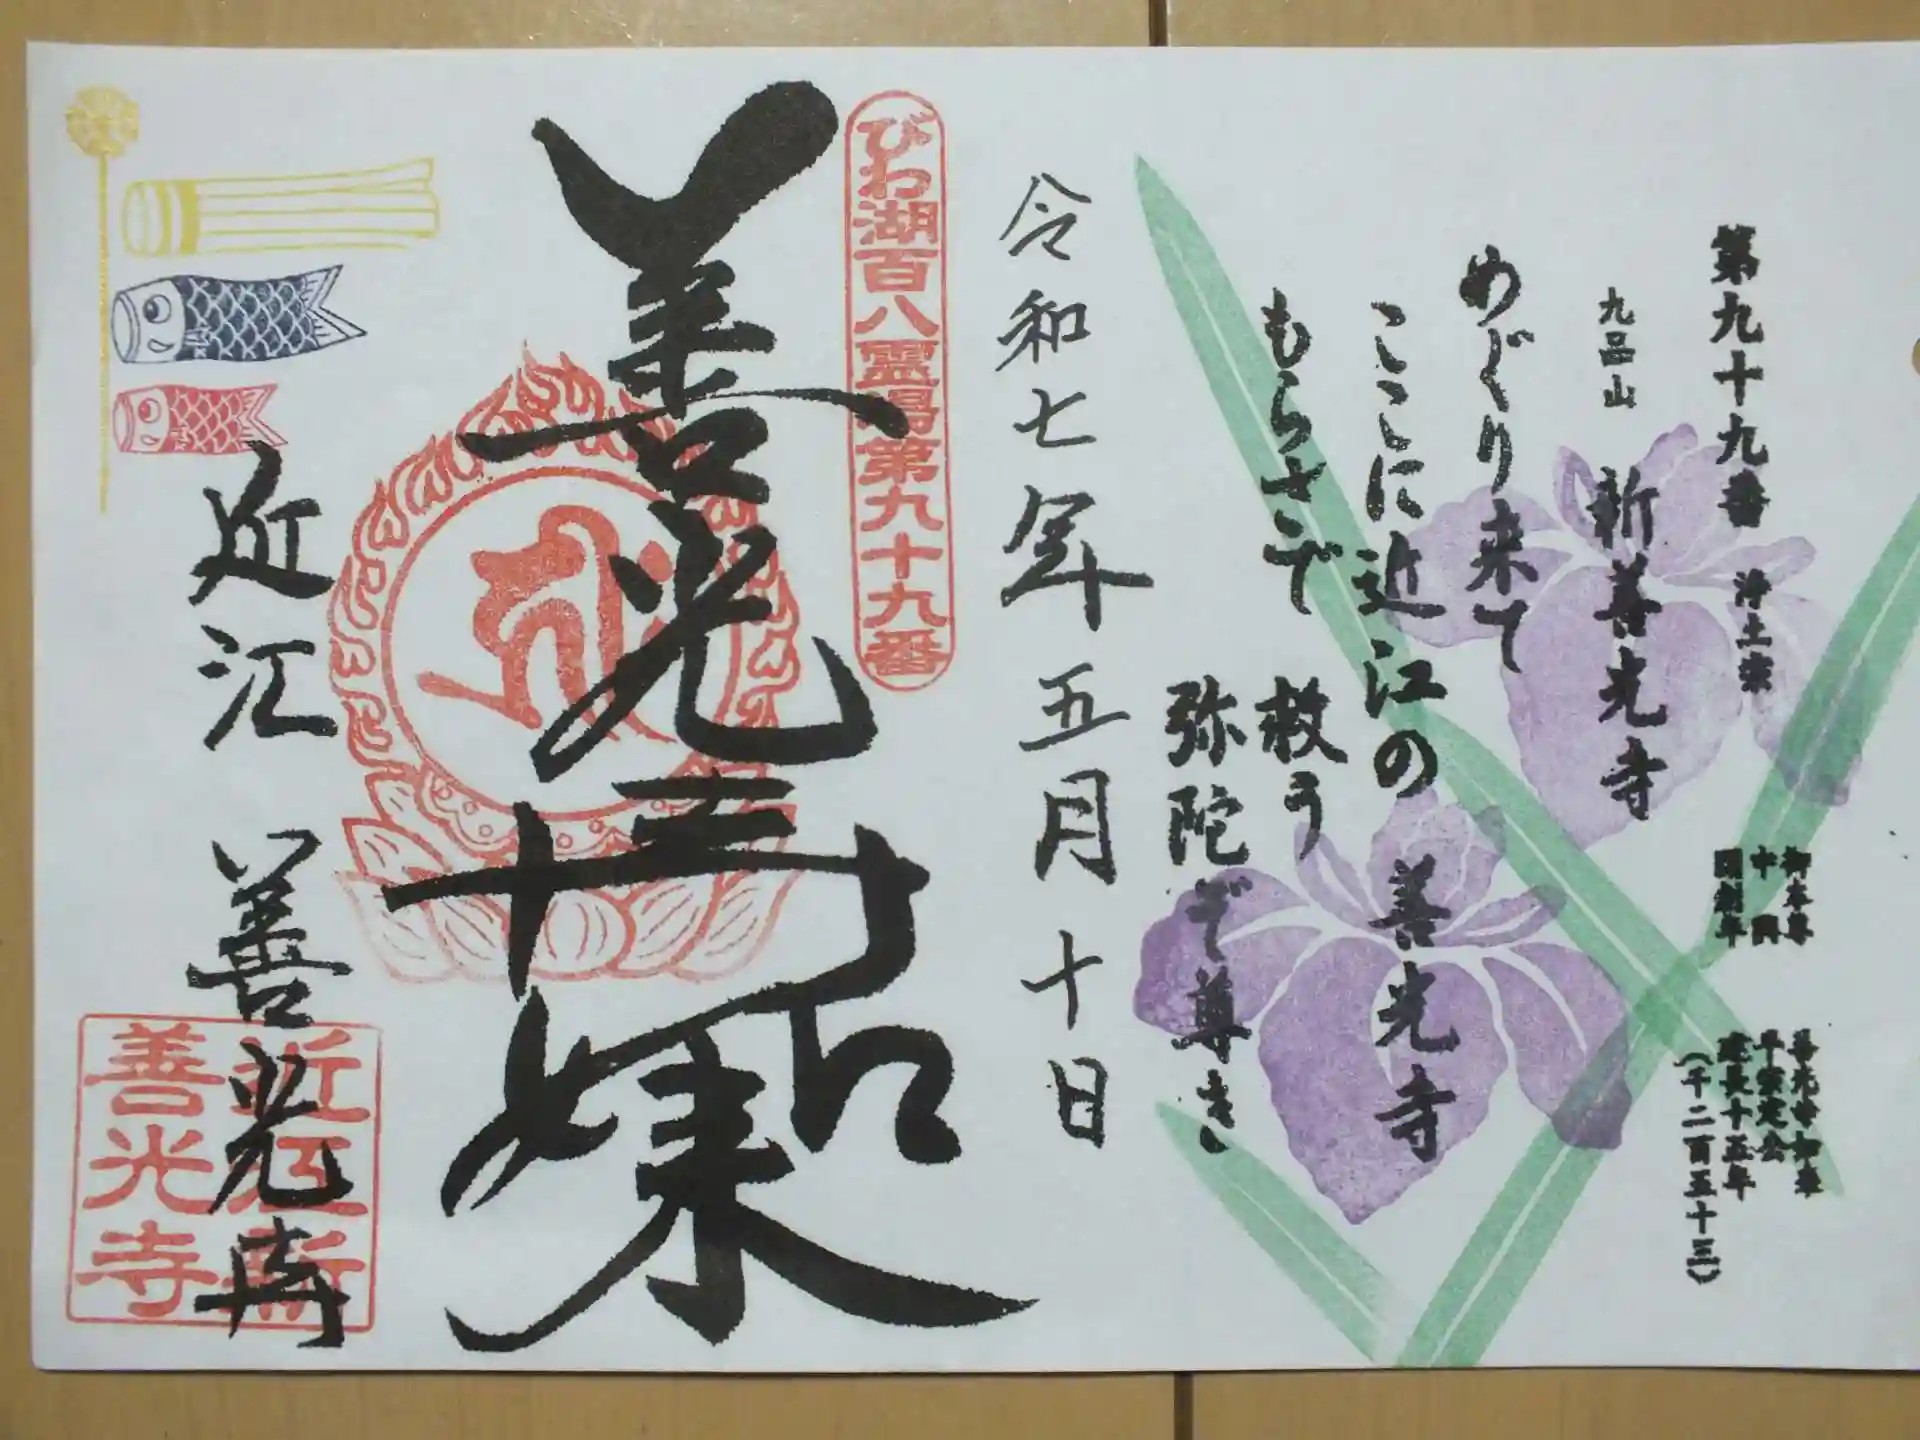 第九十九番 浄土宗
御本尊 善光寺如来
中興 平宗定公
開創年 建長十五年
(千二百五十三)
九品山 新善光寺
めぐり来て
ここに近江の 善光寺
もらさで 救う
弥陀ぞ尊き
令和七年 五月 十日
びわ湖百八霊場第九十九番
善光寺
如来
近江 善光寺
近江新
善光寺